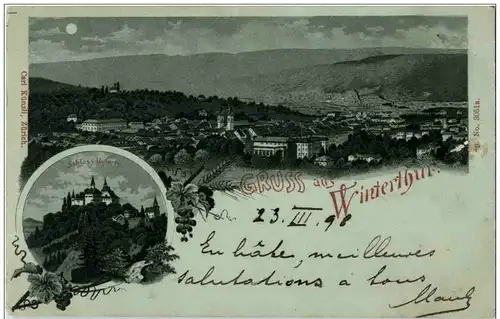 Carl Künzli, Zürich.
No. 3051a.
Schloss
GRUSS aus
Winterthur.
23. III. 98
En hâte, meilleures
salutations à tous